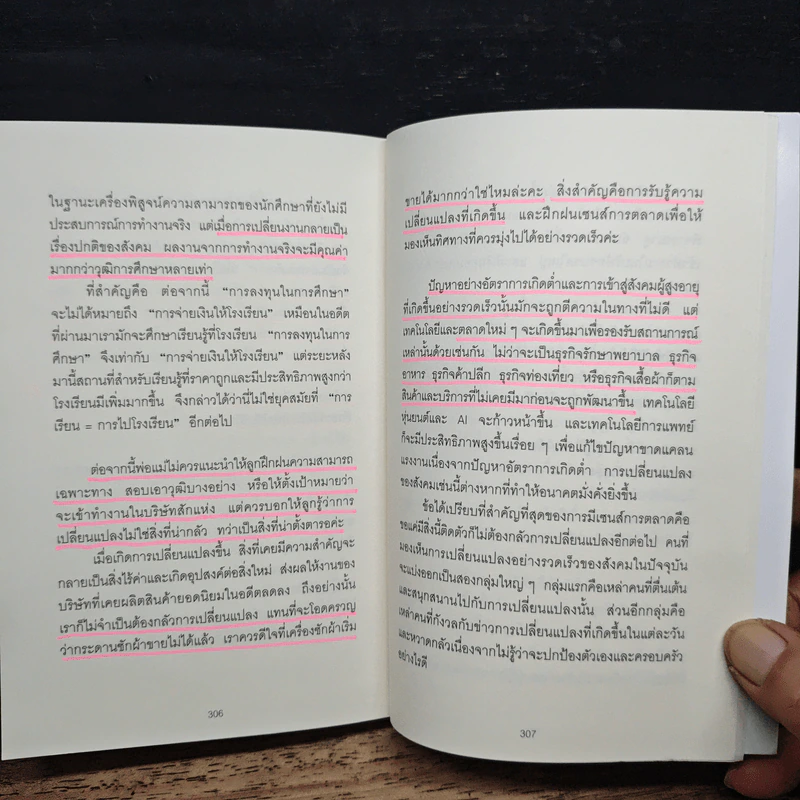 ในฐานะเครื่องพิสูจน์ความสามารถของนักศึกษาที่ยังไม่มี
ประสบการณ์การทำงานจริง แต่เมื่อการเปลี่ยนงานกลายเป็น
เรื่องปกติของสังคม ผลงานจากการทำงานจริงจะมีคุณค่า
มากกว่าวุฒิการศึกษาหลายเท่า
ที่สำคัญคือ ต่อจากนี้ "การลงทุนในการศึกษา"
จะไม่ได้หมายถึง "การจ่ายเงินให้โรงเรียน" เหมือนในอดีต
ที่ผ่านมาเรามักจะศึกษาเรียนรู้ที่โรงเรียน "การลงทุนในการ
ศึกษา" จึงเท่ากับ "การจ่ายเงินให้โรงเรียน" แต่ระยะหลัง
มานี้สถานที่สำหรับเรียนรู้ที่ราคาถูกและมีประสิทธิภาพสูงกว่า
โรงเรียนมีเพิ่มมากขึ้น จึงกล่าวได้ว่านี่ไม่ใช่ยุคสมัยที่ "การ
เรียน = การไปโรงเรียน" อีกต่อไป
ต่อจากนี้พ่อแม่ไม่ควรแนะนำให้ลูกฝึกฝนความสามารถ
เฉพาะทาง สอบเอาวุฒิบางอย่าง หรือให้ตั้งเป้าหมายว่า
จะเข้าทำงานในบริษัทสักแห่ง แต่ควรบอกให้ลูกรู้ว่าการ
เปลี่ยนแปลงไม่ใช่สิ่งที่น่ากลัว ทว่าเป็นสิ่งที่น่าตั้งตารอค่ะ
เมื่อเกิดการเปลี่ยนแปลงขึ้น สิ่งที่เคยมีความสำคัญจะ
กลายเป็นสิ่งไร้ค่าและเกิดอุปสงค์ต่อสิ่งใหม่ ส่งผลให้งานของ
บริษัทที่เคยผลิตสินค้ายอดนิยมในอดีตลดลง ถึงอย่างนั้น
เราก็ไม่จำเป็นต้องกลัวการเปลี่ยนแปลง แทนที่จะโอดครวญ
ว่ากระดานซักผ้าขายไม่ได้แล้ว เราควรดีใจที่เครื่องซักผ้าเริ่ม
306
ขายได้มากกว่าใช่ไหมล่ะคะ สิ่งสำคัญคือการรับรู้ความ
เปลี่ยนแปลงที่เกิดขึ้น และฝึกฝนเซนส์การตลาดเพื่อให้
มองเห็นทิศทางที่ควรมุ่งไปได้อย่างรวดเร็วค่ะ
ปัญหาอย่างอัตราการเกิดต่ำและการเข้าสู่สังคมผู้สูงอายุ
ที่เกิดขึ้นอย่างรวดเร็วนั้นมักจะถูกตีความในทางที่ไม่ดี แต่
เทคโนโลยีและตลาดใหม่ ๆ จะเกิดขึ้นมาเพื่อรองรับสถานการณ์
เหล่านั้นด้วยเช่นกัน ไม่ว่าจะเป็นธุรกิจรักษาพยาบาล ธุรกิจ
อาหาร ธุรกิจค้าปลีก ธุรกิจท่องเที่ยว หรือธุรกิจเสื้อผ้าก็ตาม
สินค้าและบริการที่ไม่เคยมีมาก่อนจะถูกพัฒนาขึ้น เทคโนโลยี
หุ่นยนต์และ AI จะก้าวหน้าขึ้น และเทคโนโลยีการแพทย์
ก็จะมีประสิทธิภาพสูงขึ้นเรื่อย ๆ เพื่อแก้ไขปัญหาขาดแคลน
แรงงานเนื่องจากปัญหาอัตราการเกิดต่ำ การเปลี่ยนแปลง
ของสังคมเช่นนี้ต่างหากที่ทำให้อนาคตมั่งคั่งยิ่งขึ้น
ข้อได้เปรียบที่สำคัญที่สุดของการมีเซนส์การตลาดคือ
ขอแค่มีสิ่งนี้ติดตัวก็ไม่ต้องกลัวการเปลี่ยนแปลงอีกต่อไป คนที่
มองเห็นการเปลี่ยนแปลงอย่างรวดเร็วของสังคมในปัจจุบัน
จะแบ่งออกเป็นสองกลุ่มใหญ่ ๆ กลุ่มแรกคือเหล่าคนที่ตื่นเต้น
และสนุกสนานไปกับการเปลี่ยนแปลงนั้น ส่วนอีกกลุ่มคือ
เหล่าคนที่กังวลกับข่าวการเปลี่ยนแปลงที่เกิดขึ้นในแต่ละวัน
และหวาดกลัวเนื่องจากไม่รู้ว่าจะปกป้องตัวเองและครอบครัว
อย่างไรดี
307